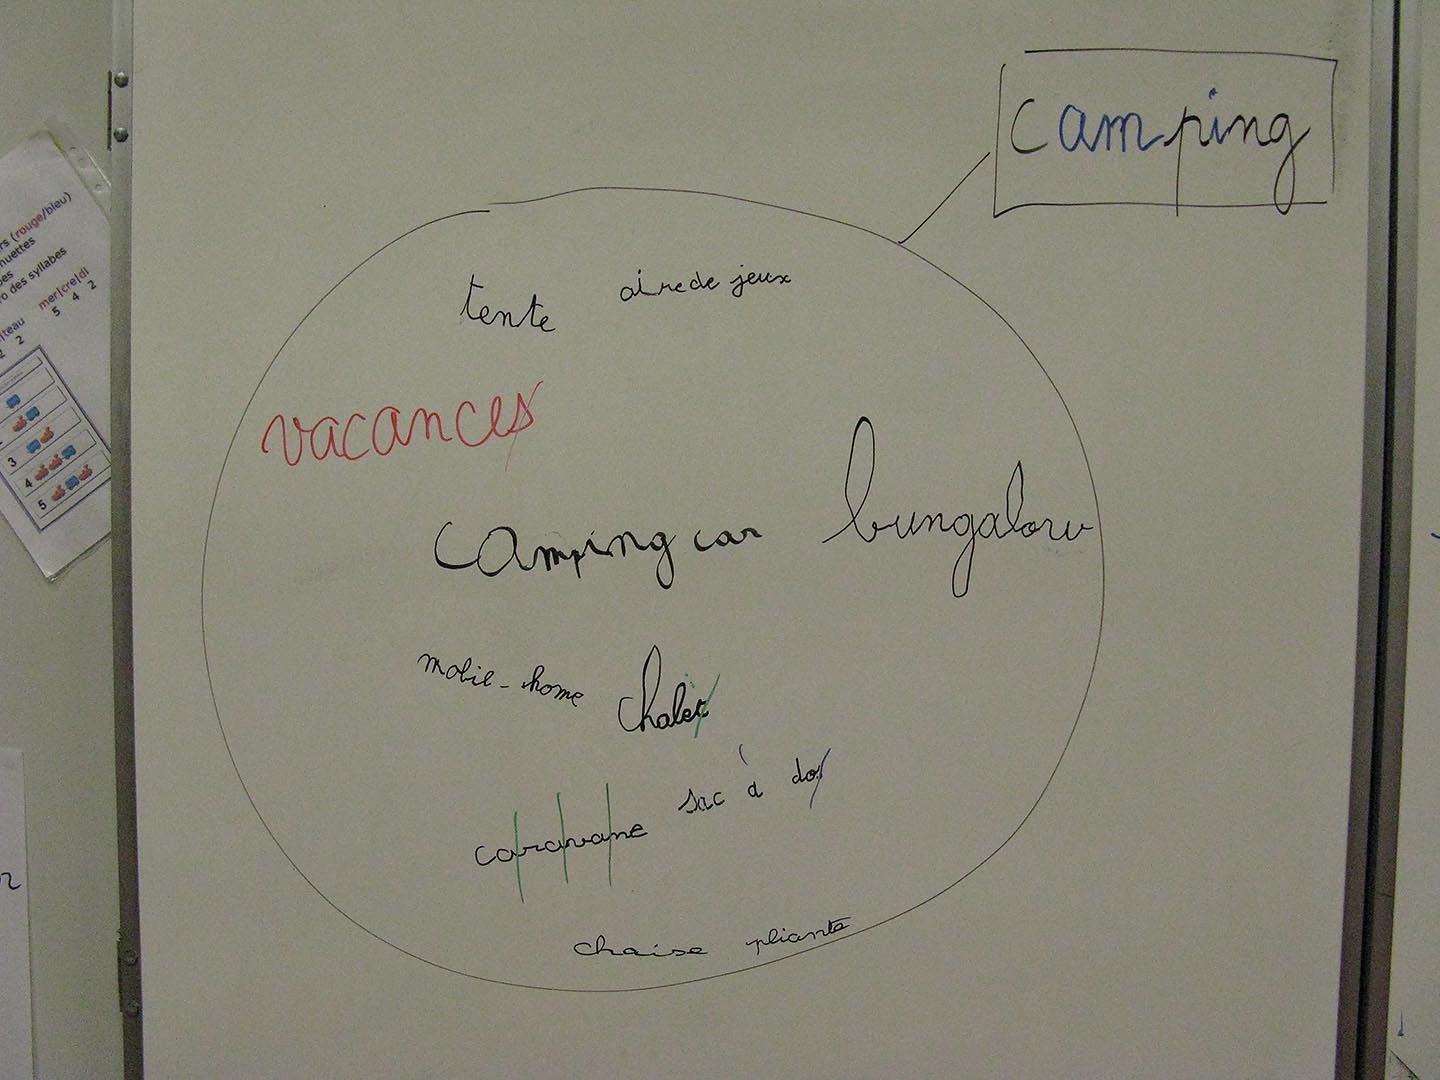 camping
tente
aire de jeux
vacances
camping car
bungalow
mobil-home
chalet
caravane
sac à dos
chaise pliante
rs (rouge/bleu)
nuettes
pes
o des syllabes
mer|cre|di
5 4 2
teau
2 2
3
4
5